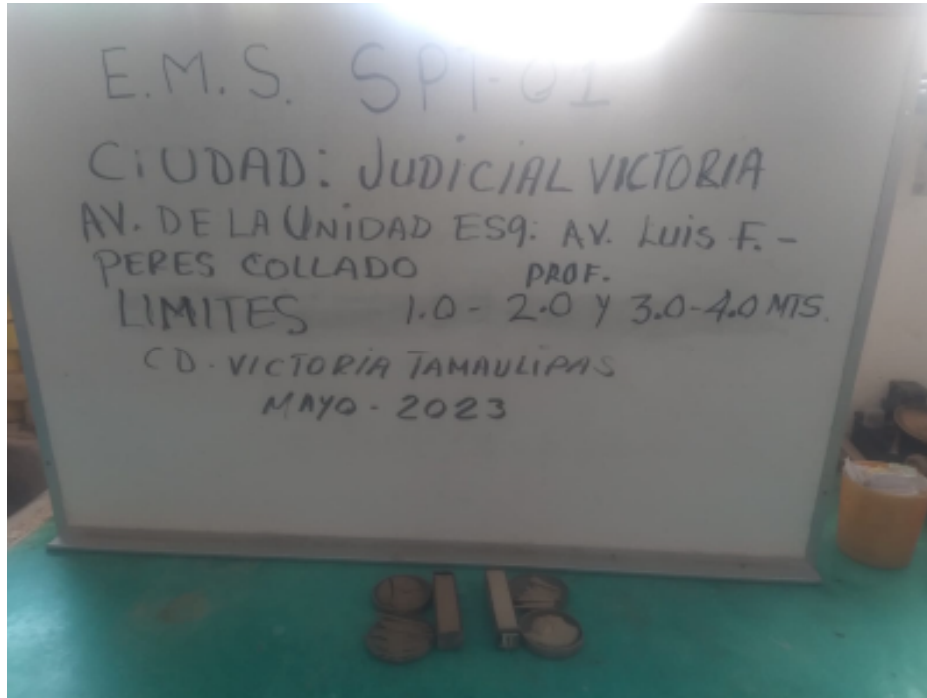 E.M.S. SPT-01
CIUDAD: JUDICIAL VICTORIA
AV. DE LA UNIDAD ESQ: AV. LUIS F.-
PERES COLLADO PROF.
LIMITES 1.0 - 2.0 Y 3.0-4.0 MTS.
CD. VICTORIA TAMAULIPAS
MAYO - 2023